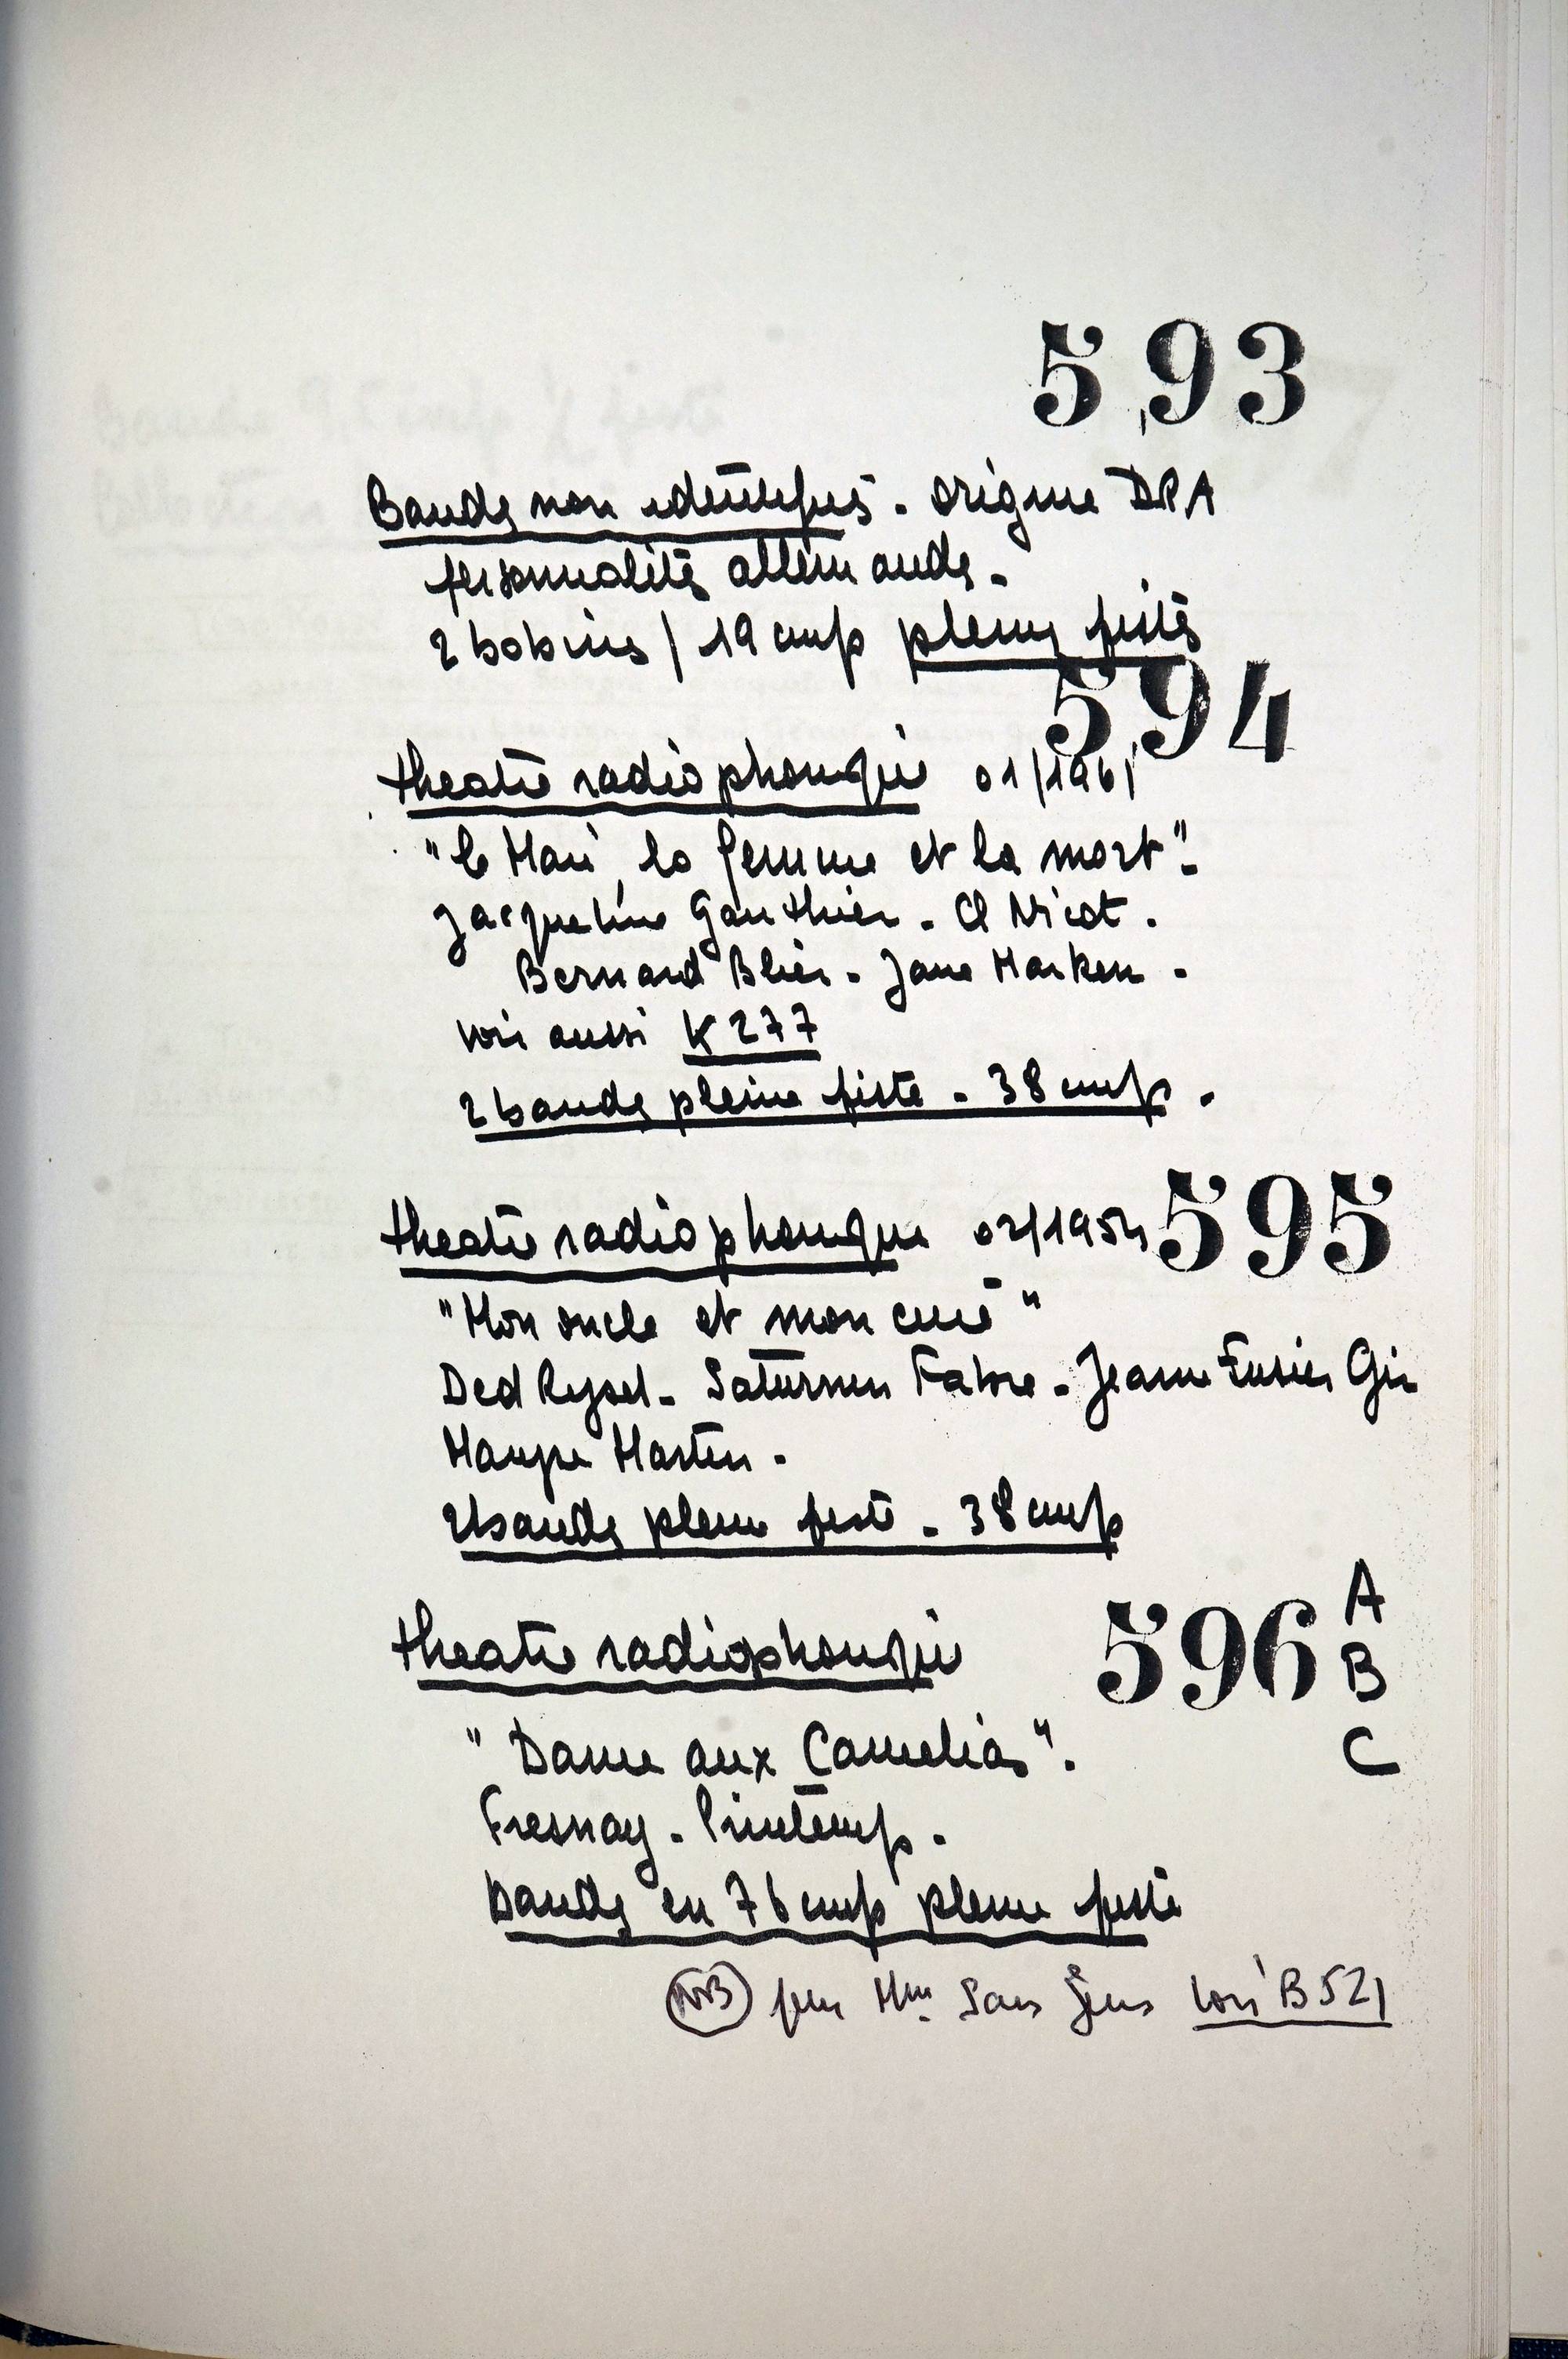 593
Bandes non identifiées. origine DPA
personnalités allemandes.
2 bobines / 19 cm/s pleines pistes
594
theatre radiophonique 01/1961
"le Mari, la femme et la mort".
Jacqueline Gauthier. Cl Nicot.
Bernard Blier. Jane Marken.
voir aussi K 277
2 bandes pleine piste. 38 cm/s.
theatre radiophonique 02/1954 595
"Mon oncle et mon curé"
Ded Rysel. Saturnin Fabre. Jeanne Fusier Gir
Martin.
2 bandes pleine piste. 38 cm/s
theatre radiophonique 596 A
B
C
"Dame aux Camelias".
Fresnay. Printemps.
bandes en 76 cm/s pleine piste
NB pour Mme Sans Gêne voir B 521